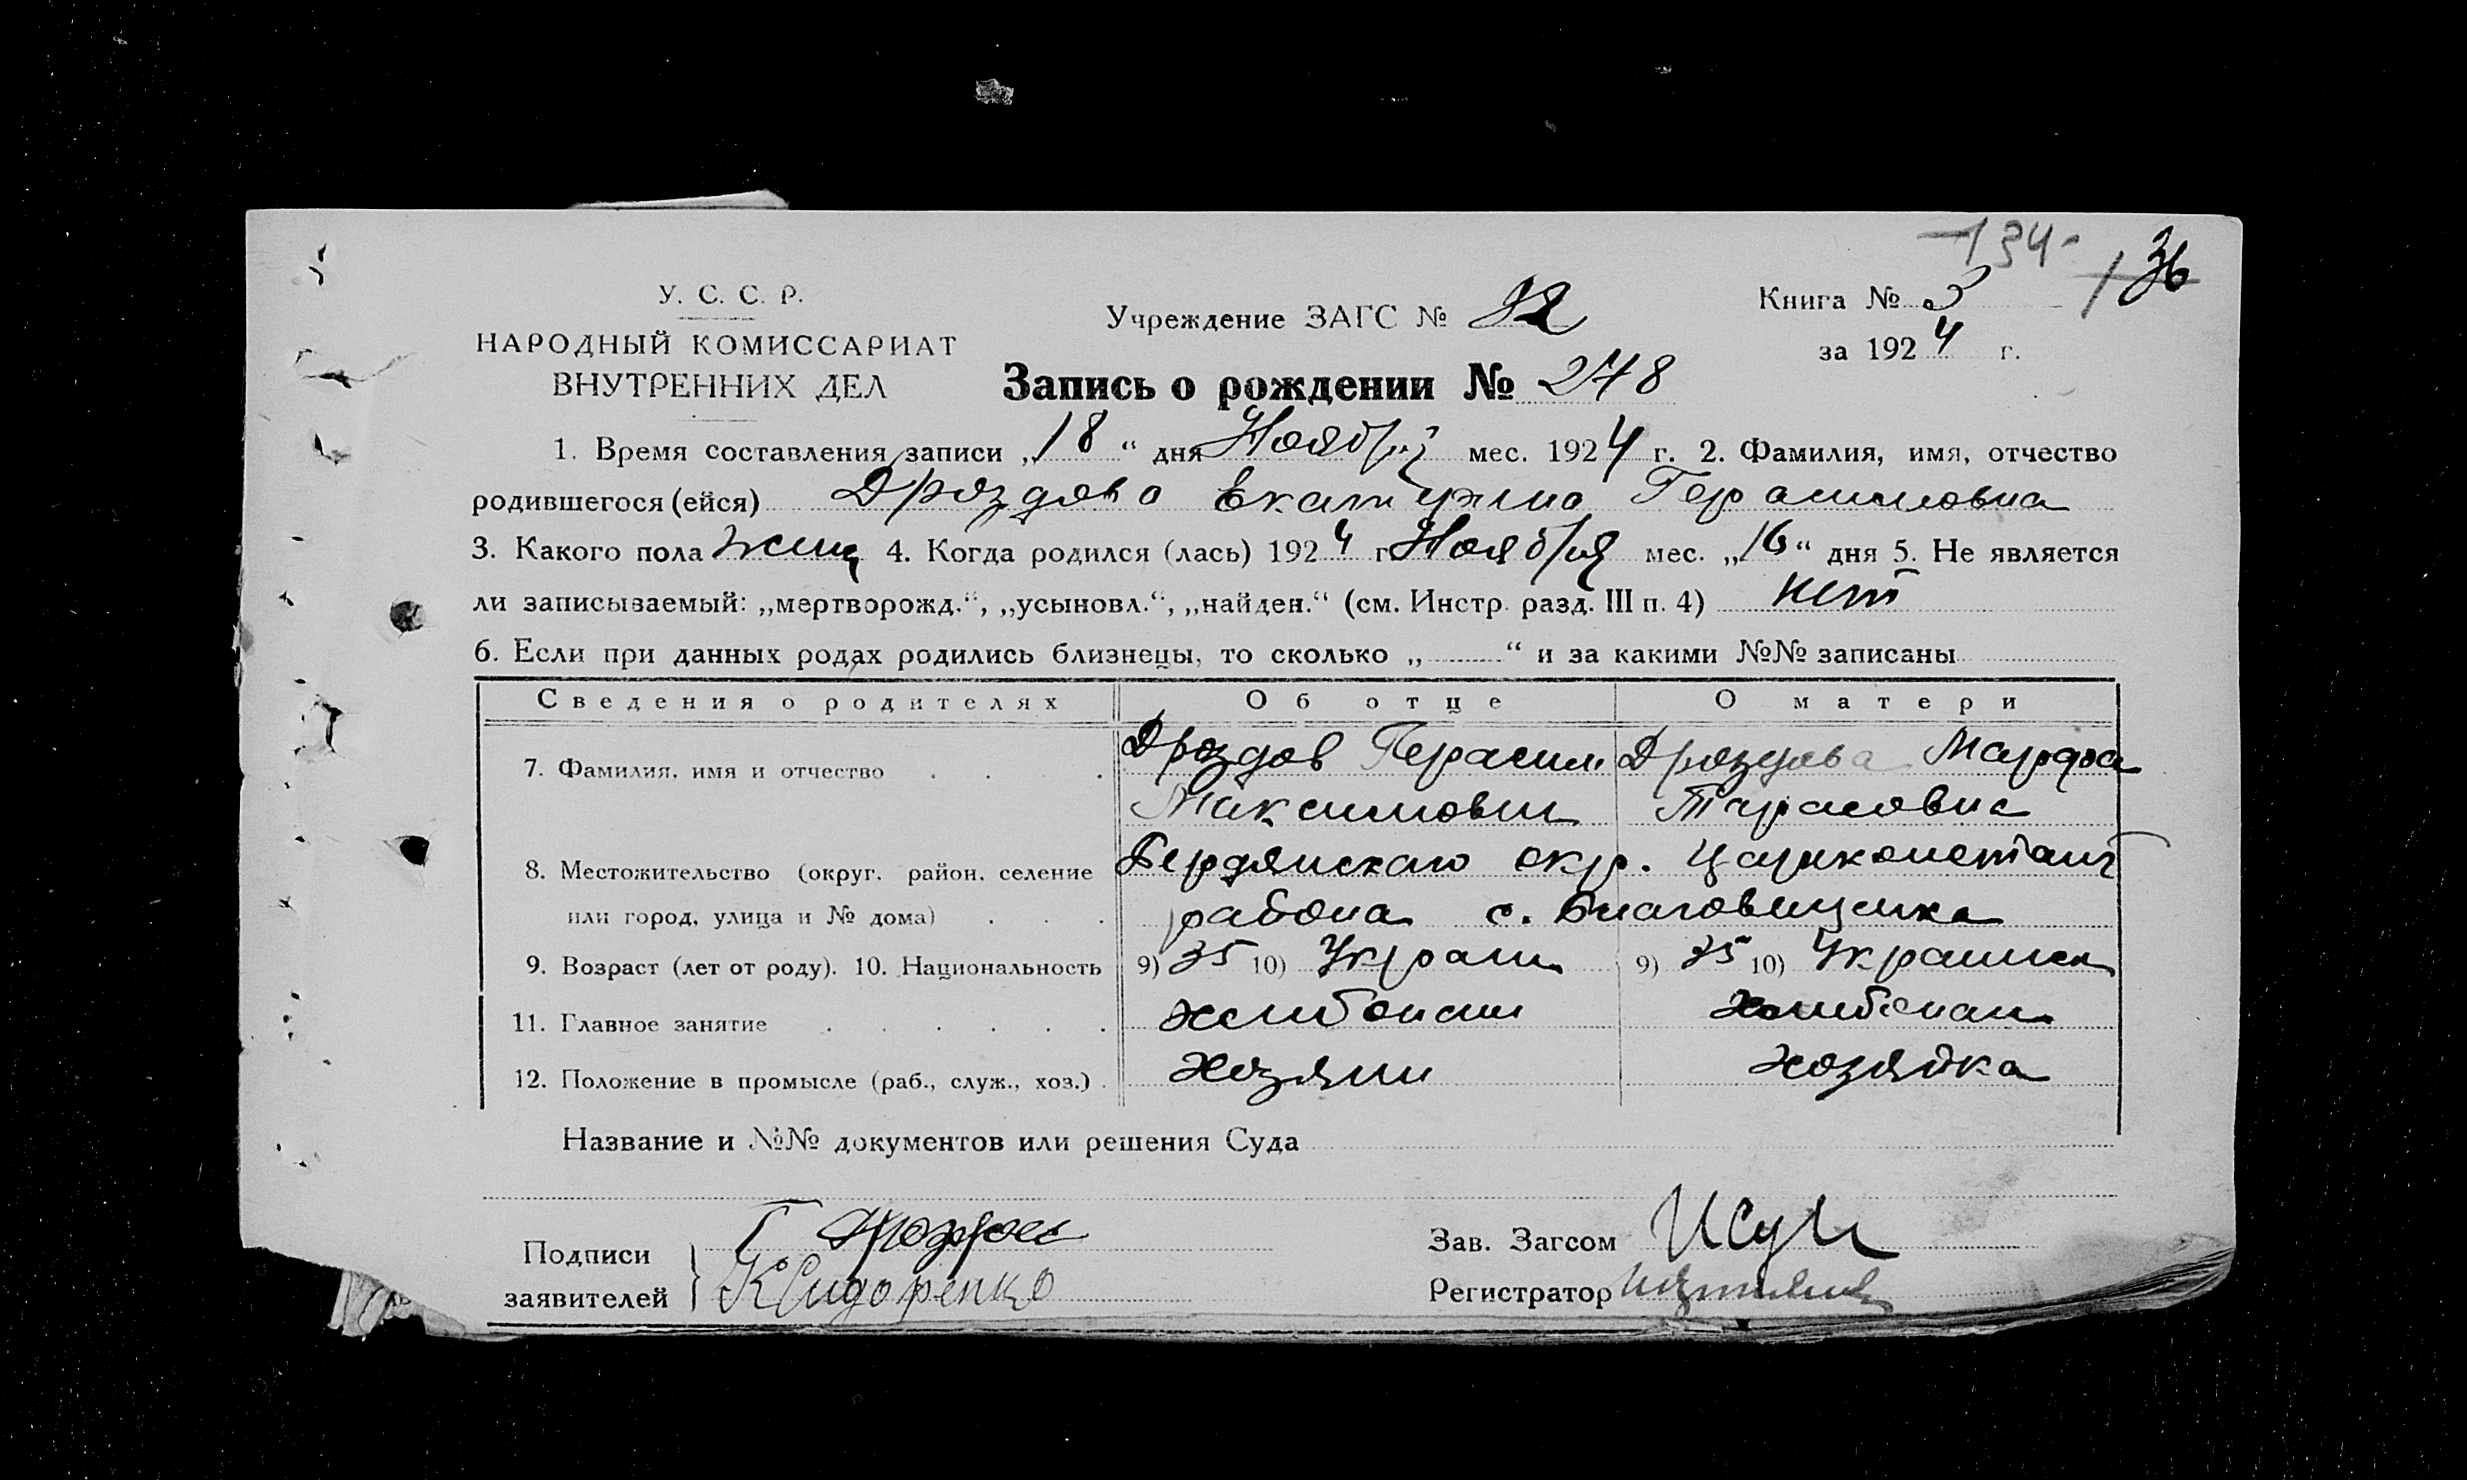 134
136
У. С. С. Р.
НАРОДНЫЙ КОМИССАРИАТ
ВНУТРЕННИХ ДЕЛ
Учреждение ЗАГС №
Книга № 3
за 1924 г.
Запись о рождении № 248
1. Время составления записи „18“ дня Ноября мес. 1924 г. 2. Фамилия, имя, отчество
родившегося (ейся) Дроздова Екатерина Герасимовна
3. Какого пола женщ 4. Когда родился (лась) 1924 г Ноября мес. „16“ дня 5. Не является
ли записываемый: „мертворожд.“, „усыновл.“, „найден.“ (см. Инстр. разд. III п. 4) нет
6. Если при данных родах родились близнецы, то сколько „ “ и за какими №№ записаны
Сведения о родителях Об отце О матери
7. Фамилия, имя и отчество Дроздов Герасим Дроздова Марфа
Максимович Тарасовна
8. Местожительство (округ, район, селение Бердянского окр. Царконстант
или город, улица и № дома) района с. Благовещенка
9. Возраст (лет от роду). 10. Национальность 9) 35 10) Украин 9) 35 10) Украинка
11. Главное занятие хлибопаш хлибопаш
12. Положение в промысле (раб., служ., хоз.) хозяин хозяйка
Название и №№ документов или решения Суда
Подписи Г Дроздов Зав. Загсом
заявителей К Сидоренко Регистратор